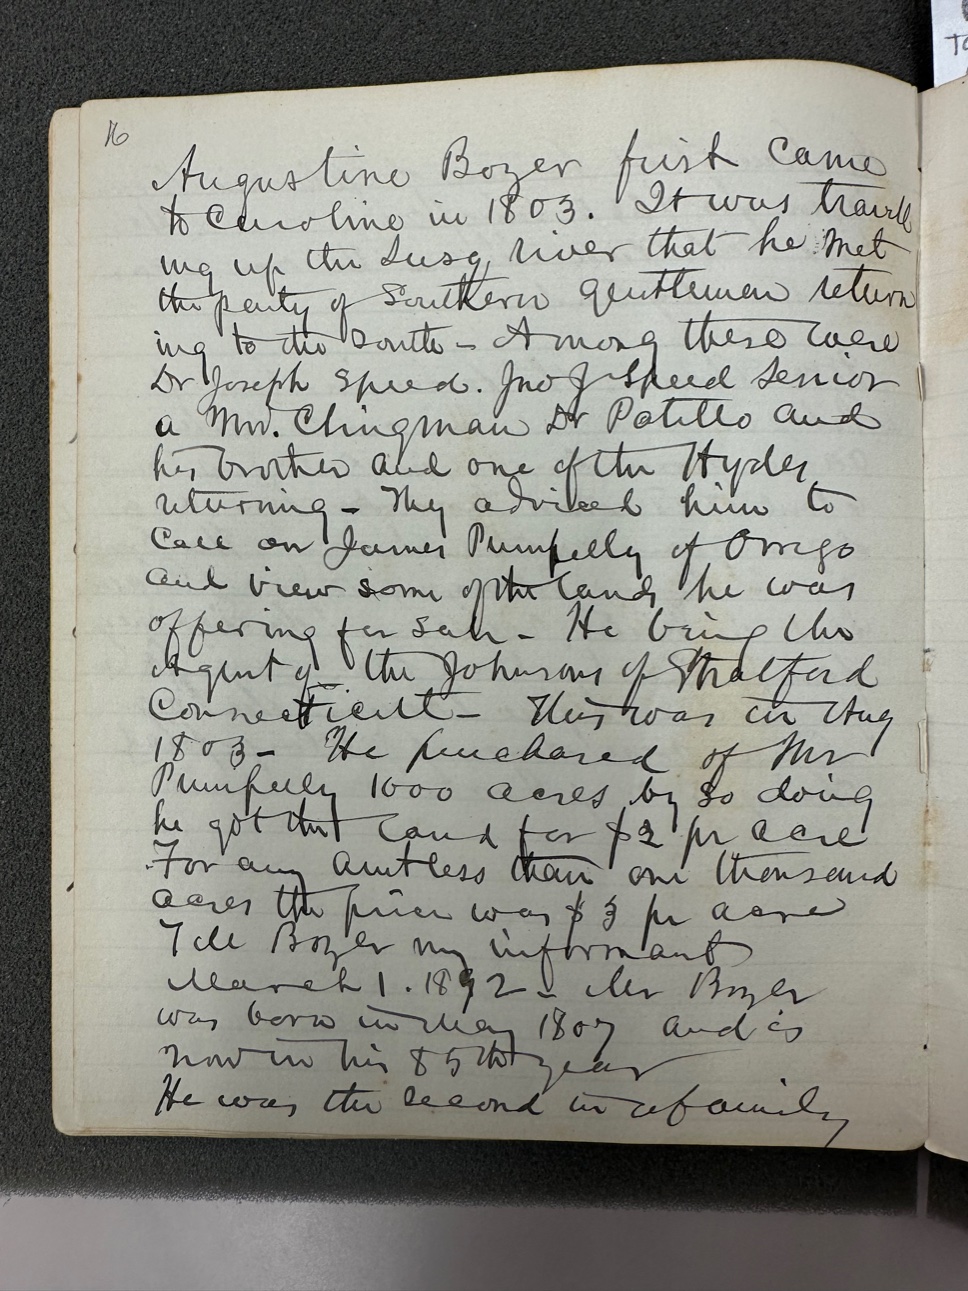 16
Augustine Bozer first came
to Caroline in 1803. It was travell
ing up the Susq river that he met
the party of Southern gentlemen return
ing to the South - Among these were
Dr Joseph Speed. Jno J Speed Senior
a Mr. Clingman Dr Patillo and
his brother and one of the Hydes
returning - They advised him to
call on James Pumpelly of Owego
and view some of the lands he was
offering for sale - He being the
Agent of the Johnsons of Stratford
Connecticutt - This was in Aug
1803 - He purchased of Mr
Pumpelly 1000 acres by so doing
he got the land for $2 pr acre
For any amt less than one thousand
acres the price was $3 pr acre
Bozer my informant
March 1. 1892 - Mr Bozer
was born in May 1807 and is
now in his 85th year
He was the second in a family